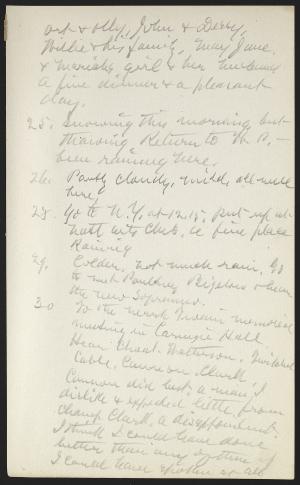 art & Olly, John & Dessy,
Willie & his family, Mary Jane,
& Mariah's girl & her husband
a fine dinner & a pleasant
day.
25. Snowing this morning but
thawing. Return to W. P. –
been raining here.
26. Partly cloudy, mild, all well
here.
28. Go to N.Y. at 12.15, put up at
Natl arts Club, a fine place
Raining
29. Colder, not much rain. Go
to meet Poultney Bigelow & hear
the new Sopranos.
30 To the Mark Twain memorial
meeting in Carnegie Hall
Hear Choat, Watterson, Twichell
Cable, Cannon, Clark.
Cannon did best, a man I
dislike & expected little from
Champ Clark, a disappointment.
I think I could have done
better than any of them if
I could have spoken at all